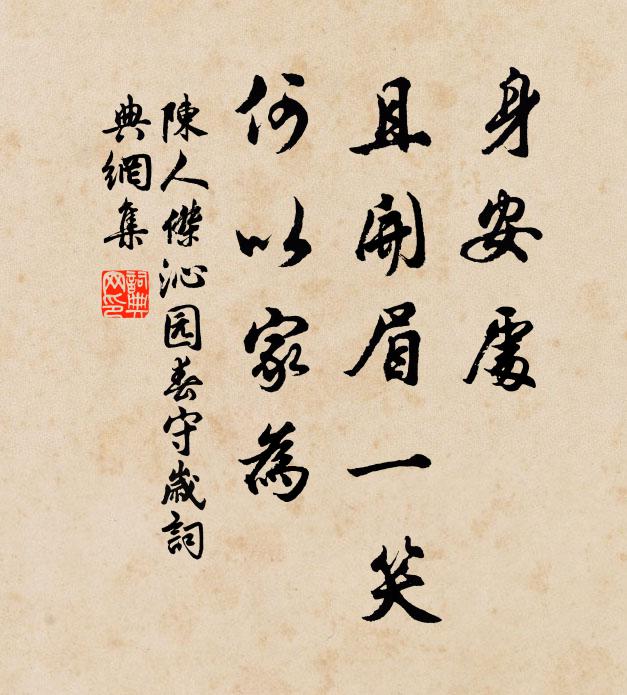 身安處
且開眉一笑
何以家為
陳人傑沁园春守歲詞
典網集
詞典网印